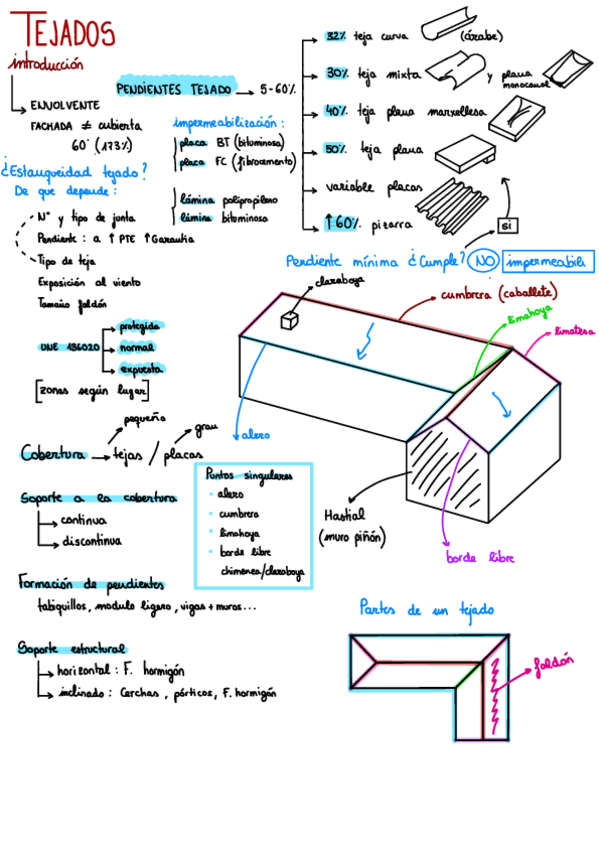 TEJADOS
introducción
ENVOLVENTE
FACHADA ≠ cubierta
60° (173%)
¿Estanqueidad tejado?
De que depende:
Nº y tipo de junta
Pendiente: a ↑ PTE ↑ Garantía
Tipo de teja
Exposición al viento
Tamaño faldón
UNE 136020
protegida
normal
expuesta
[zonas según lugar]
PENDIENTES TEJADO → 5-60%
impermeabilización:
placa BT (bituminosa)
placa FC (fibrocemento)
lámina polipropileno
lámina bituminosa
32% teja curva (árabe)
30% teja mixta y plana monocanal
40% teja plana marxellesa
50% teja plana
variable placas
↑60% pizarra
SI
Pendiente mínima ¿Cumple? NO impermeabili
claraboya
cumbrera (caballete)
limahoya
limatesa
alero
Hastial
(muro piñón)
borde libre
pequeño
gran
Cobertura → tejas / placas
Soporte a la cobertura
continua
discontinua
Formación de pendientes
tabiquillos, modulo ligero, vigas + muros...
Soporte estructural
horizontal: F. hormigón
inclinado: Cerchas, pórticos, F. hormigón
Puntos singulares
alero
cumbrera
limohoya
borde libre
chimenea/claraboya
Partes de un tejado
faldón